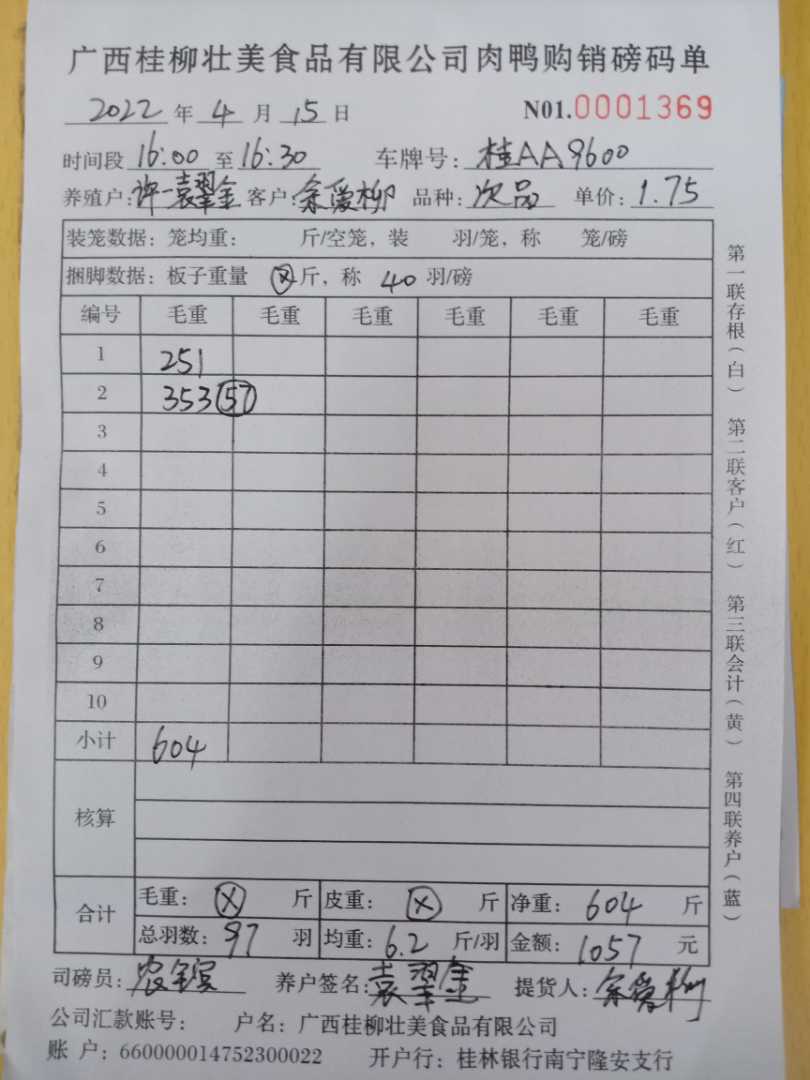 广西桂柳壮美食品有限公司肉鸭购销磅码单
2022 年 4 月 15 日 N01.0001369
时间段 16:00 至 16:30 车牌号: 桂AA9600
养殖户: 许一袁翠金 客户: 余爱柳 品种: 次品 单价: 1.75
装笼数据: 笼均重: 斤/空笼, 装 羽/笼, 称 笼/磅
捆脚数据: 板子重量 ⓧ 斤, 称 40 羽/磅
编号 毛重 毛重 毛重 毛重 毛重 毛重
1 251
2 353 57
3
4
5
6
7
8
9
10
小计 604
核算
合计 毛重: ⓧ 斤 皮重: ⓧ 斤 净重: 604 斤
总羽数: 97 羽 均重: 6.2 斤/羽 金额: 1057 元
司磅员: 养户签名: 袁翠金 提货人: 余爱柳
公司汇款账号: 户名: 广西桂柳壮美食品有限公司
账 户: 660000014752300022 开户行: 桂林银行南宁隆安支行
第一联存根(白) 第二联客户(红) 第三联会计(黄) 第四联养户(蓝)